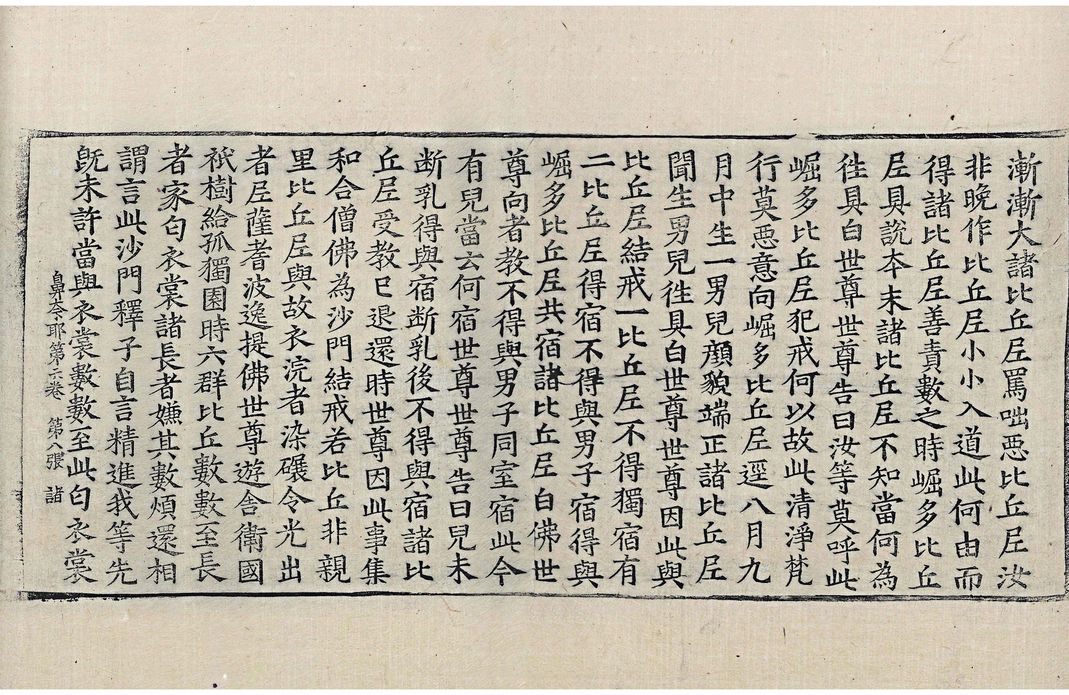 漸漸大諸比丘尼罵咄惡比丘尼汝
非晚作比丘尼小小入道此何由而
得諸比丘尼善責數之時崛多比丘
尼具說夲末諸比丘尼不知當何為
徃具白世尊世尊告曰汝等莫呼此
崛多比丘尼犯戒何以故此清淨梵
行莫惡意向崛多比丘尼逕八月九
月中生一男兒顔貌端正諸比丘尼
聞生男兒徃具白世尊世尊因此與
比丘尼結戒一比丘尼不得獨宿有
二比丘尼得宿不得與男子宿得與
崛多比丘尼共宿諸比丘尼白佛世
尊向者教不得與男子同室宿此今
有兒當云何宿世尊世尊告曰兒未
断乳得與宿断乳後不得與宿諸比
丘尼受教已退還時世尊因此事集
和合僧佛為沙門結戒若比丘非親
里比丘尼與故衣浣者染碾令光出
者尼薩耆波逸提佛世尊遊舎衛國
祇樹給孤獨園時六群比丘數數至長
者家匂衣裳諸長者嫌其數煩還相
謂言此沙門釋子自言精進我等先
旣未許當與衣裳數數至此匂衣裳
鼻奈耶第六卷　第八張　諧